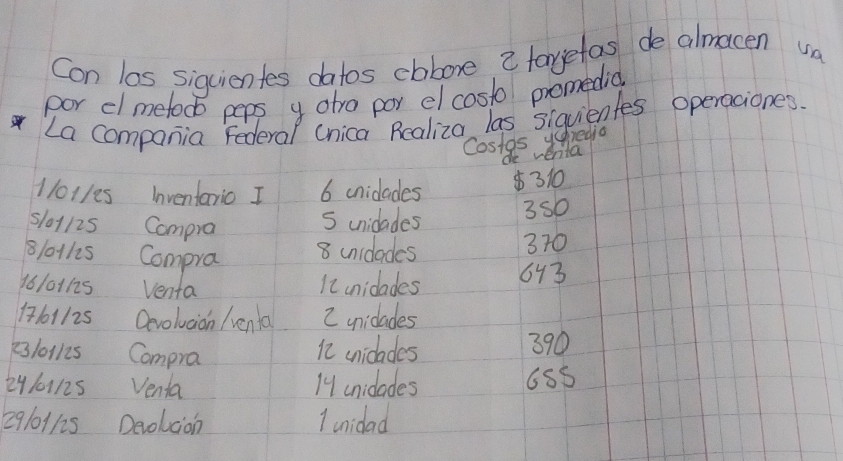 Con los siguientes datos elabore 2 tarjetas de almacen una
por el metodo peps y otra por el costo promedio.
* La Compañia Federal Unica Realiza las siguientes operaciones.
Costos y precio
de venta
1/01/25 Inventario I 6 unidades $310
5/01/25 Compra 5 unidades 350
8/01/25 Compra 8 unidades 370
16/01/25 Venta 12 unidades 643
17/01/25 Devolución/venta 2 unidades
23/01/25 Compra 12 unidades 390
24/01/25 Venta 14 unidades 655
29/01/25 Devolución 1 unidad